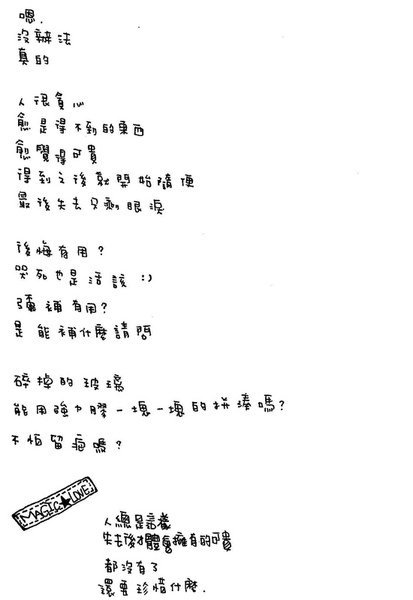 嗯.
沒辦法
真的
人很貪心
愈是得不到的東西
愈覺得可貴
得到之後就開始隨便
最後失去只剩眼淚
後悔有用?
哭死也是活該 :)
彌補有用?
是能補什麼請問
碎掉的玻璃
能用強力膠一塊一塊的拼湊嗎?
不怕留疤嗎?
MAGIC★LOVE
人總是這樣
失去後才體會擁有的可貴
都沒有了
還要珍惜什麼.